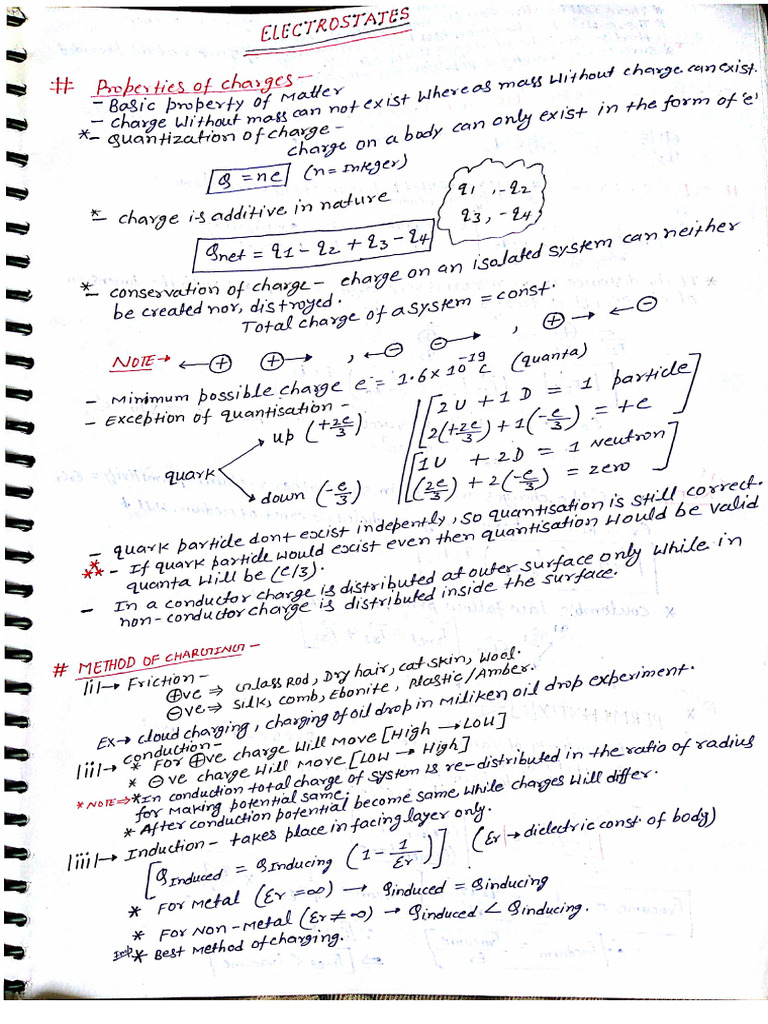 ELECTROSTATES
# Properties of charges -
- Basic property of Matter
- charge without mass can not exist where as mass without charge can exist.
*- quantization of charge -
charge on a body can only exist in the form of 'e'
Q = ne (n = Integer)
*- charge is additive in nature
q1, -q2
q3, -q4
Qnet = q1 - q2 + q3 - q4
*- conservation of charge - charge on an isolated system can neither
be created nor, distroyed.
Total charge of a system = const.
NOTE → ←⊕ ⊕→ , ←⊖ ⊖→ , ⊕→ ←⊖
- Minimum possible charge e = 1.6 × 10^-19 C (quanta)
- Exception of quantisation -
quark
up (+2e/3)
down (-e/3)
[2U + 1D = 1 particle
2(+2e/3) + 1(-e/3) = +e]
[1U + 2D = 1 neutron
(2e/3) + 2(-e/3) = zero]
- quark particle dont excist indepently, so quantisation is still correct.
*** - If quark particle would excist even then quantisation would be valid
quanta will be (e/3).
- In a conductor charge is distributed at outer surface only while in
non-conductor charge is distributed inside the surface.
# METHOD OF CHARGING -
(i) → Friction -
⊕ve ⇒ Glass Rod, Dry hair, cat skin, wool.
⊖ve ⇒ Silk, comb, Ebonite, Plastic/Amber.
Ex → cloud charging, charging of oil drop in Miliken oil drop experiment.
(ii) → conduction -
* For ⊕ve charge will move [High → LOW]
* ⊖ve charge will move [LOW → High]
* NOTE ⇒ * In conduction total charge of system is re-distributed in the ratio of radius
for making potential same.
* After conduction potential become same while charges will differ.
(iii) → Induction - takes place in facing layer only.
[QInduced = QInducing (1 - 1/εr)] (εr → dielectric const of body)
* For Metal (εr = ∞) → Qinduced = Qinducing
* For Non-Metal (εr ≠ ∞) → Qinduced < Qinducing.
Imp * Best Method of charging.